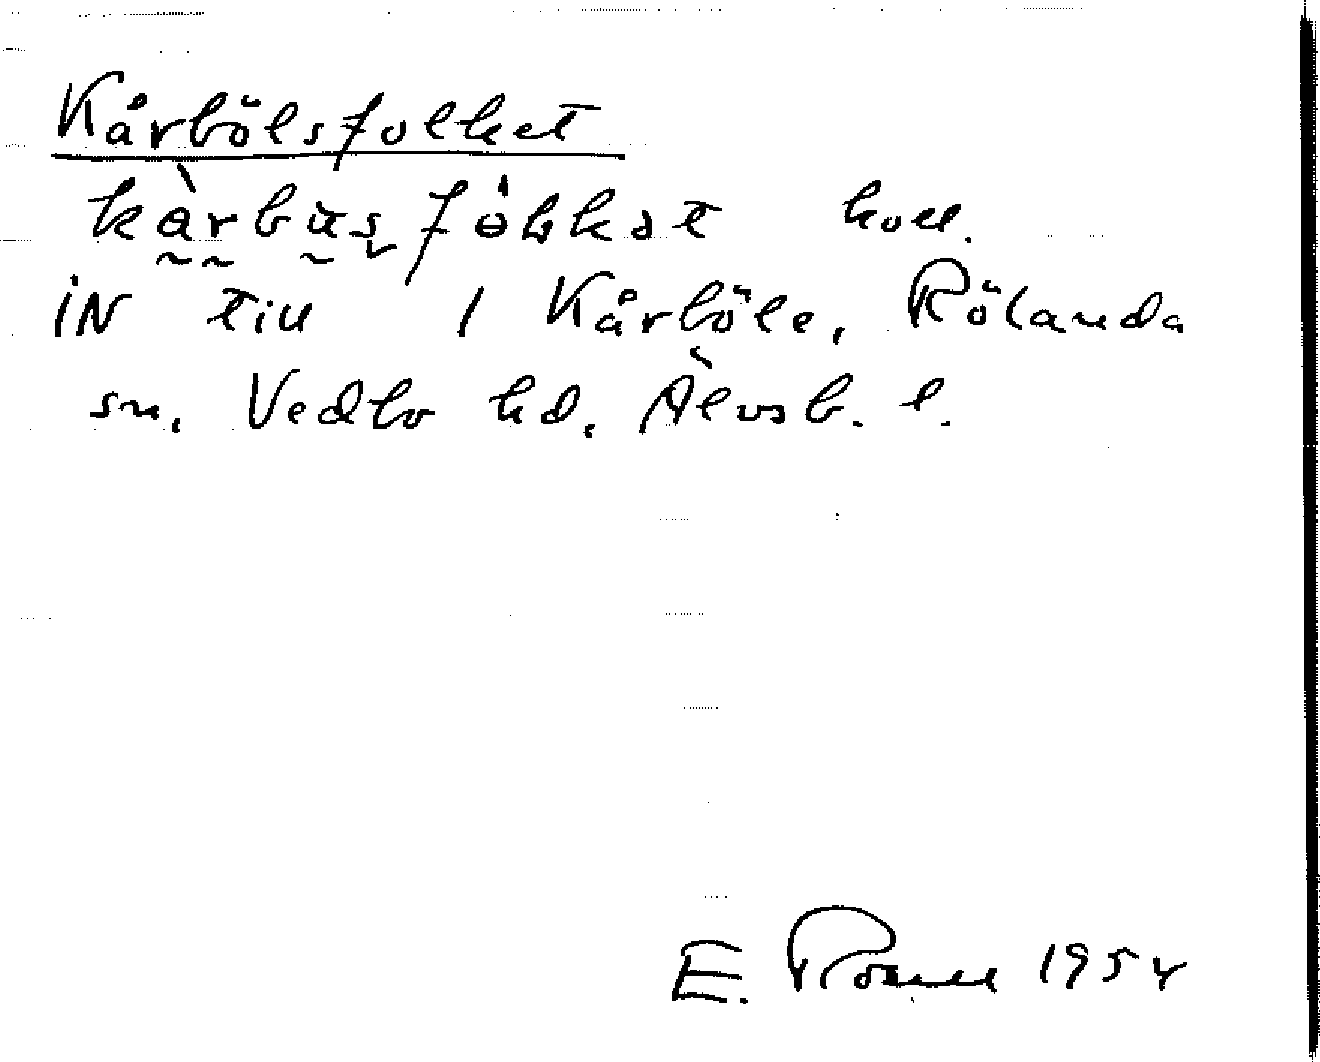 Kårbölsfolket
koll.
IN till 1 Kårböle, Rölanda
sn. Vedbo hd. Älvsb. l.
E. Rosell 1954